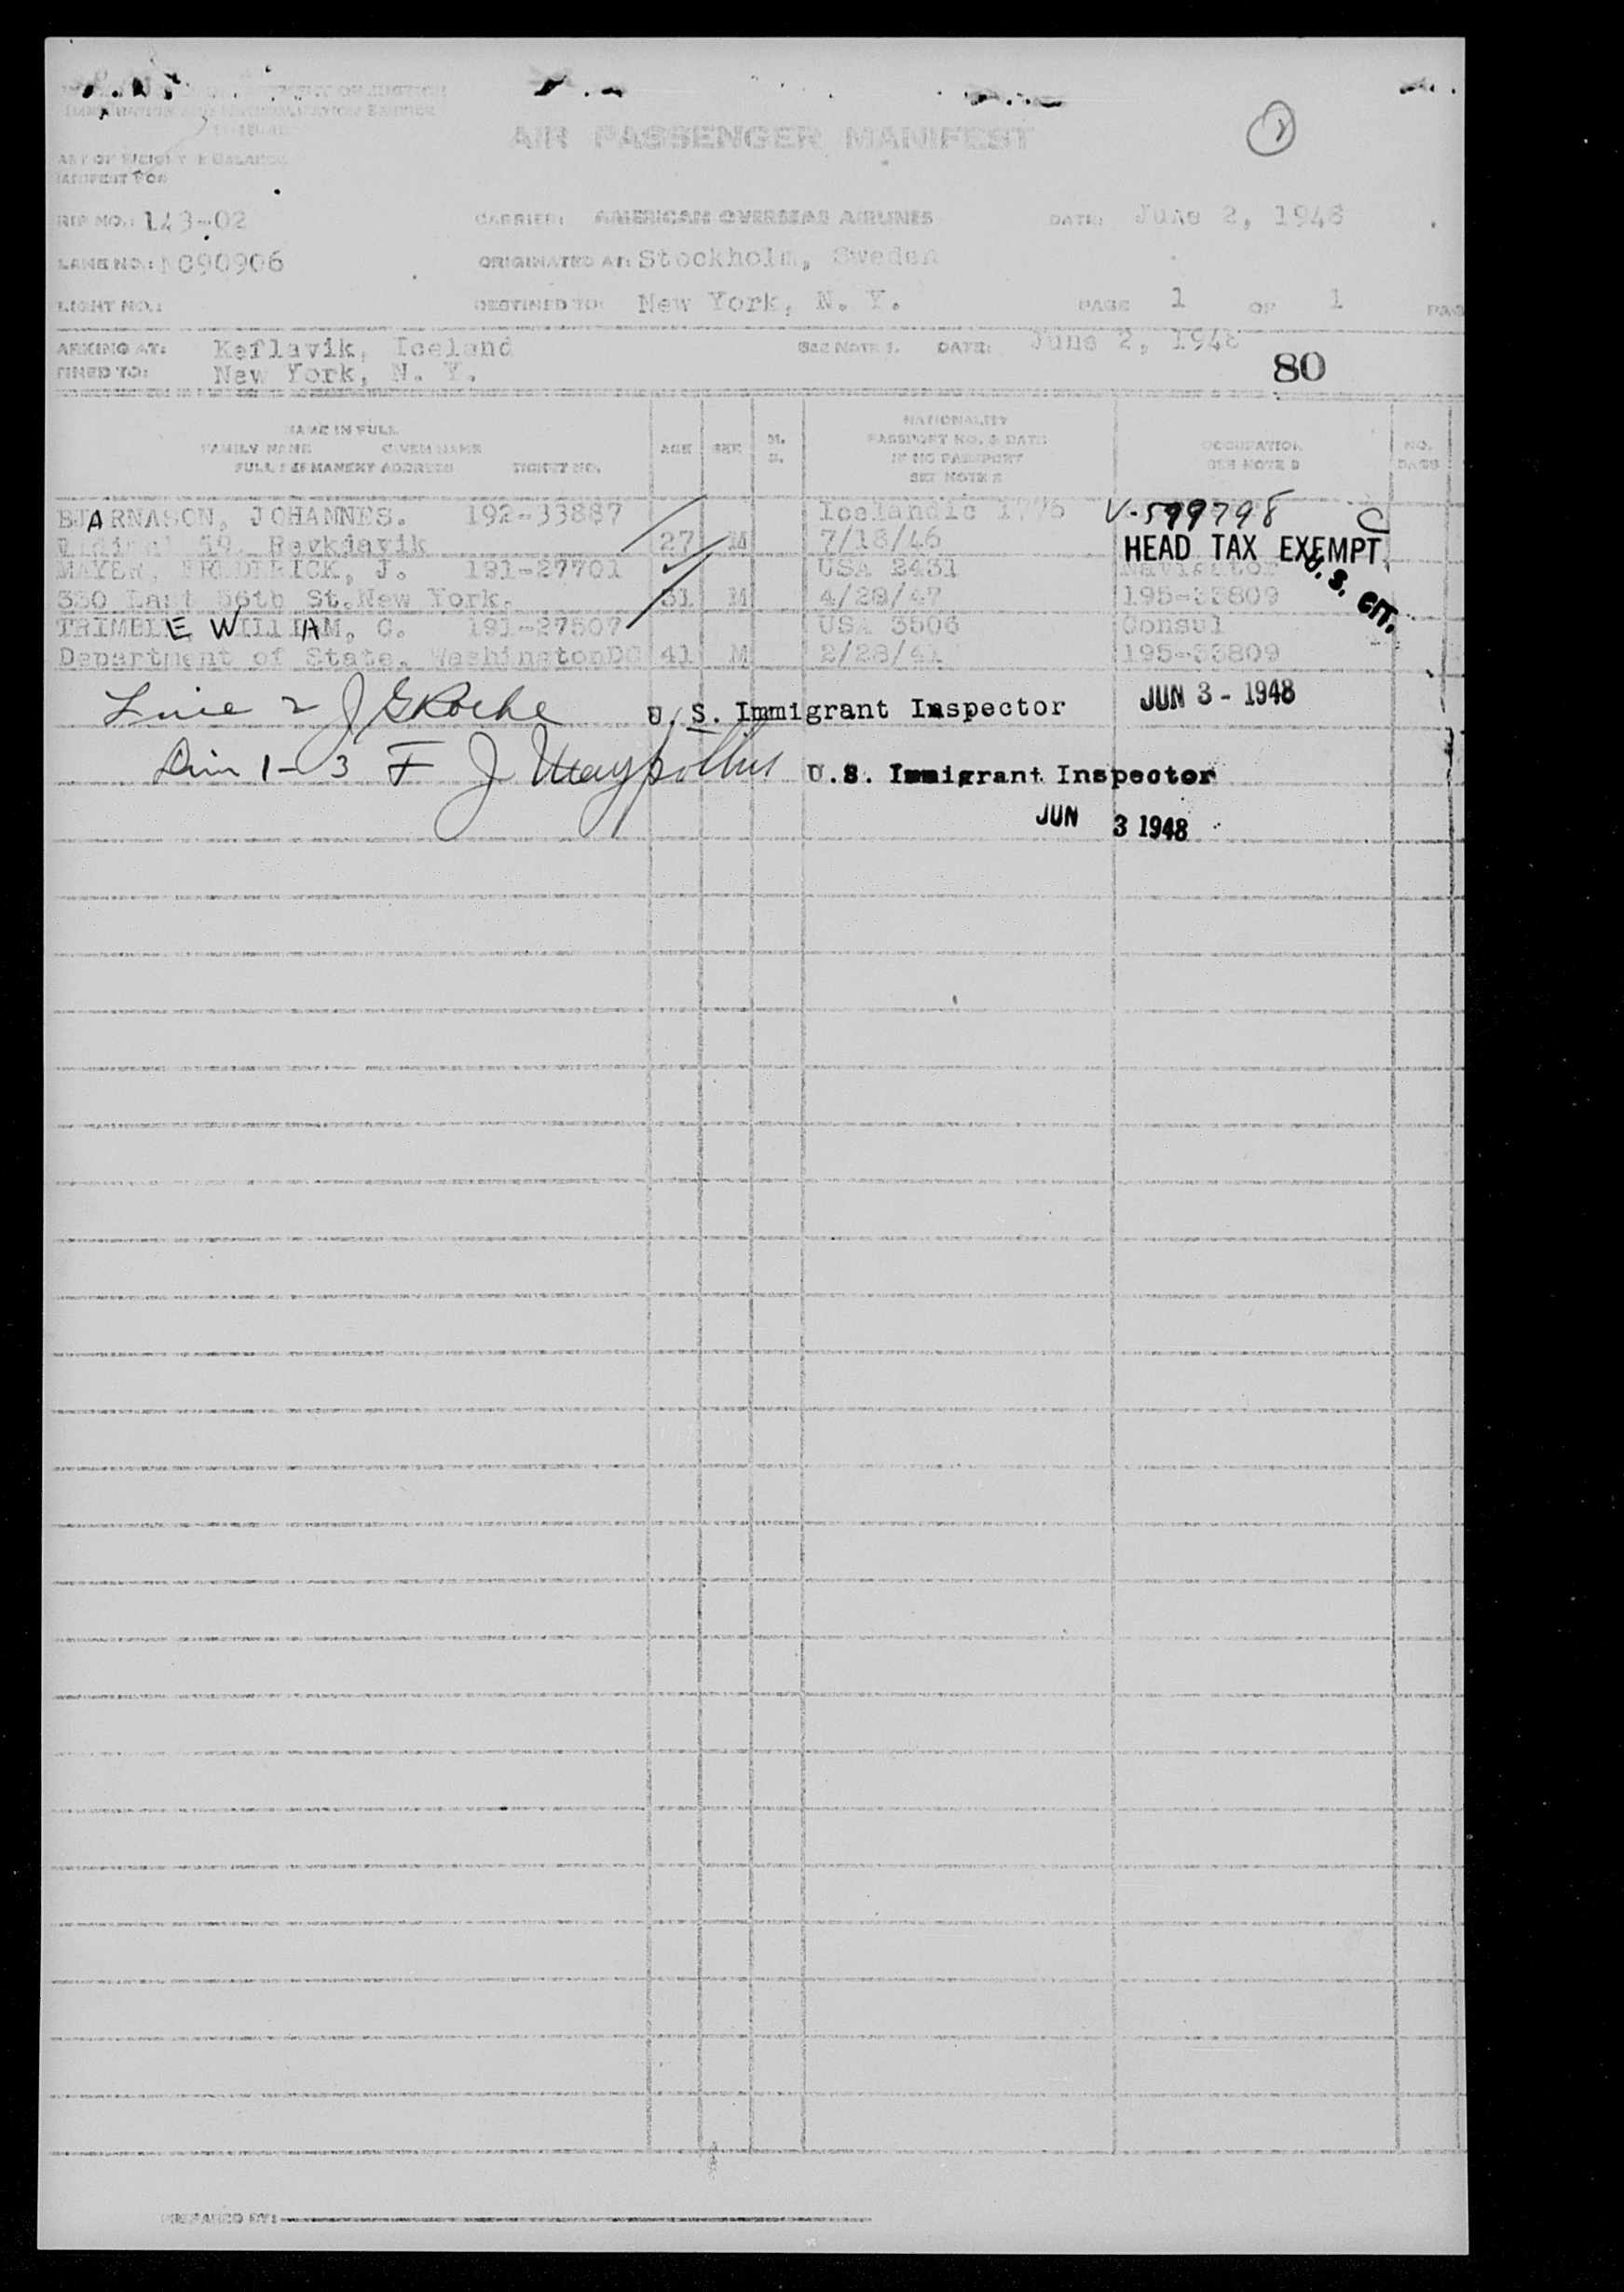 DEPARTMENT OF JUSTICE
IMMIGRATION AND NATURALIZATION SERVICE
AIR PASSENGER MANIFEST
ART OF WEIGHT & BALANCE
MANIFEST FOR
RIP NO.: 143-02 CARRIER: AMERICAN OVERSEAS AIRLINES DATE: June 2, 1948
LANE NO.: NC90906 ORIGINATED AT: Stockholm, Sweden
LIGHT NO.: DESTINED TO: New York, N. Y. PAGE 1 OF 1 PAG
ARKING AT: Keflavik, Iceland SEE NOTE 1. DATE: June 2, 1948
TINED TO: New York, N. Y. 80
NAME IN FULL
FAMILY NAME GIVEN NAME
FULL PERMANENT ADDRESS TICKET NO.
AGE SEX M. S.
NATIONALITY
PASSPORT NO. & DATE
IF NO PASSPORT
SEE NOTE
OCCUPATION
SEE NOTE
NO.
BAGS
BJARNASON, JOHANNES. 192-33887 Icelandic 1776 V-599798
59, Reykjavik 27 M 7/18/46 HEAD TAX EXEMPT
MAYER, FREDERICK, J. 191-27701 USA 2431 Navigator U. S. CIT.
330 East 56th St. New York. 31 M 4/28/47 195-33809
TRIMBLE WILLIAM, C. 191-27507 USA 3506 Consul
Department of State, WashingtonDC 41 M 2/28/41 195-33809
Line 2 J G Roche U. S. Immigrant Inspector JUN 3 - 1948
1-3 F J U.S. Immigrant Inspector
JUN 3 1948
PREPARED BY: